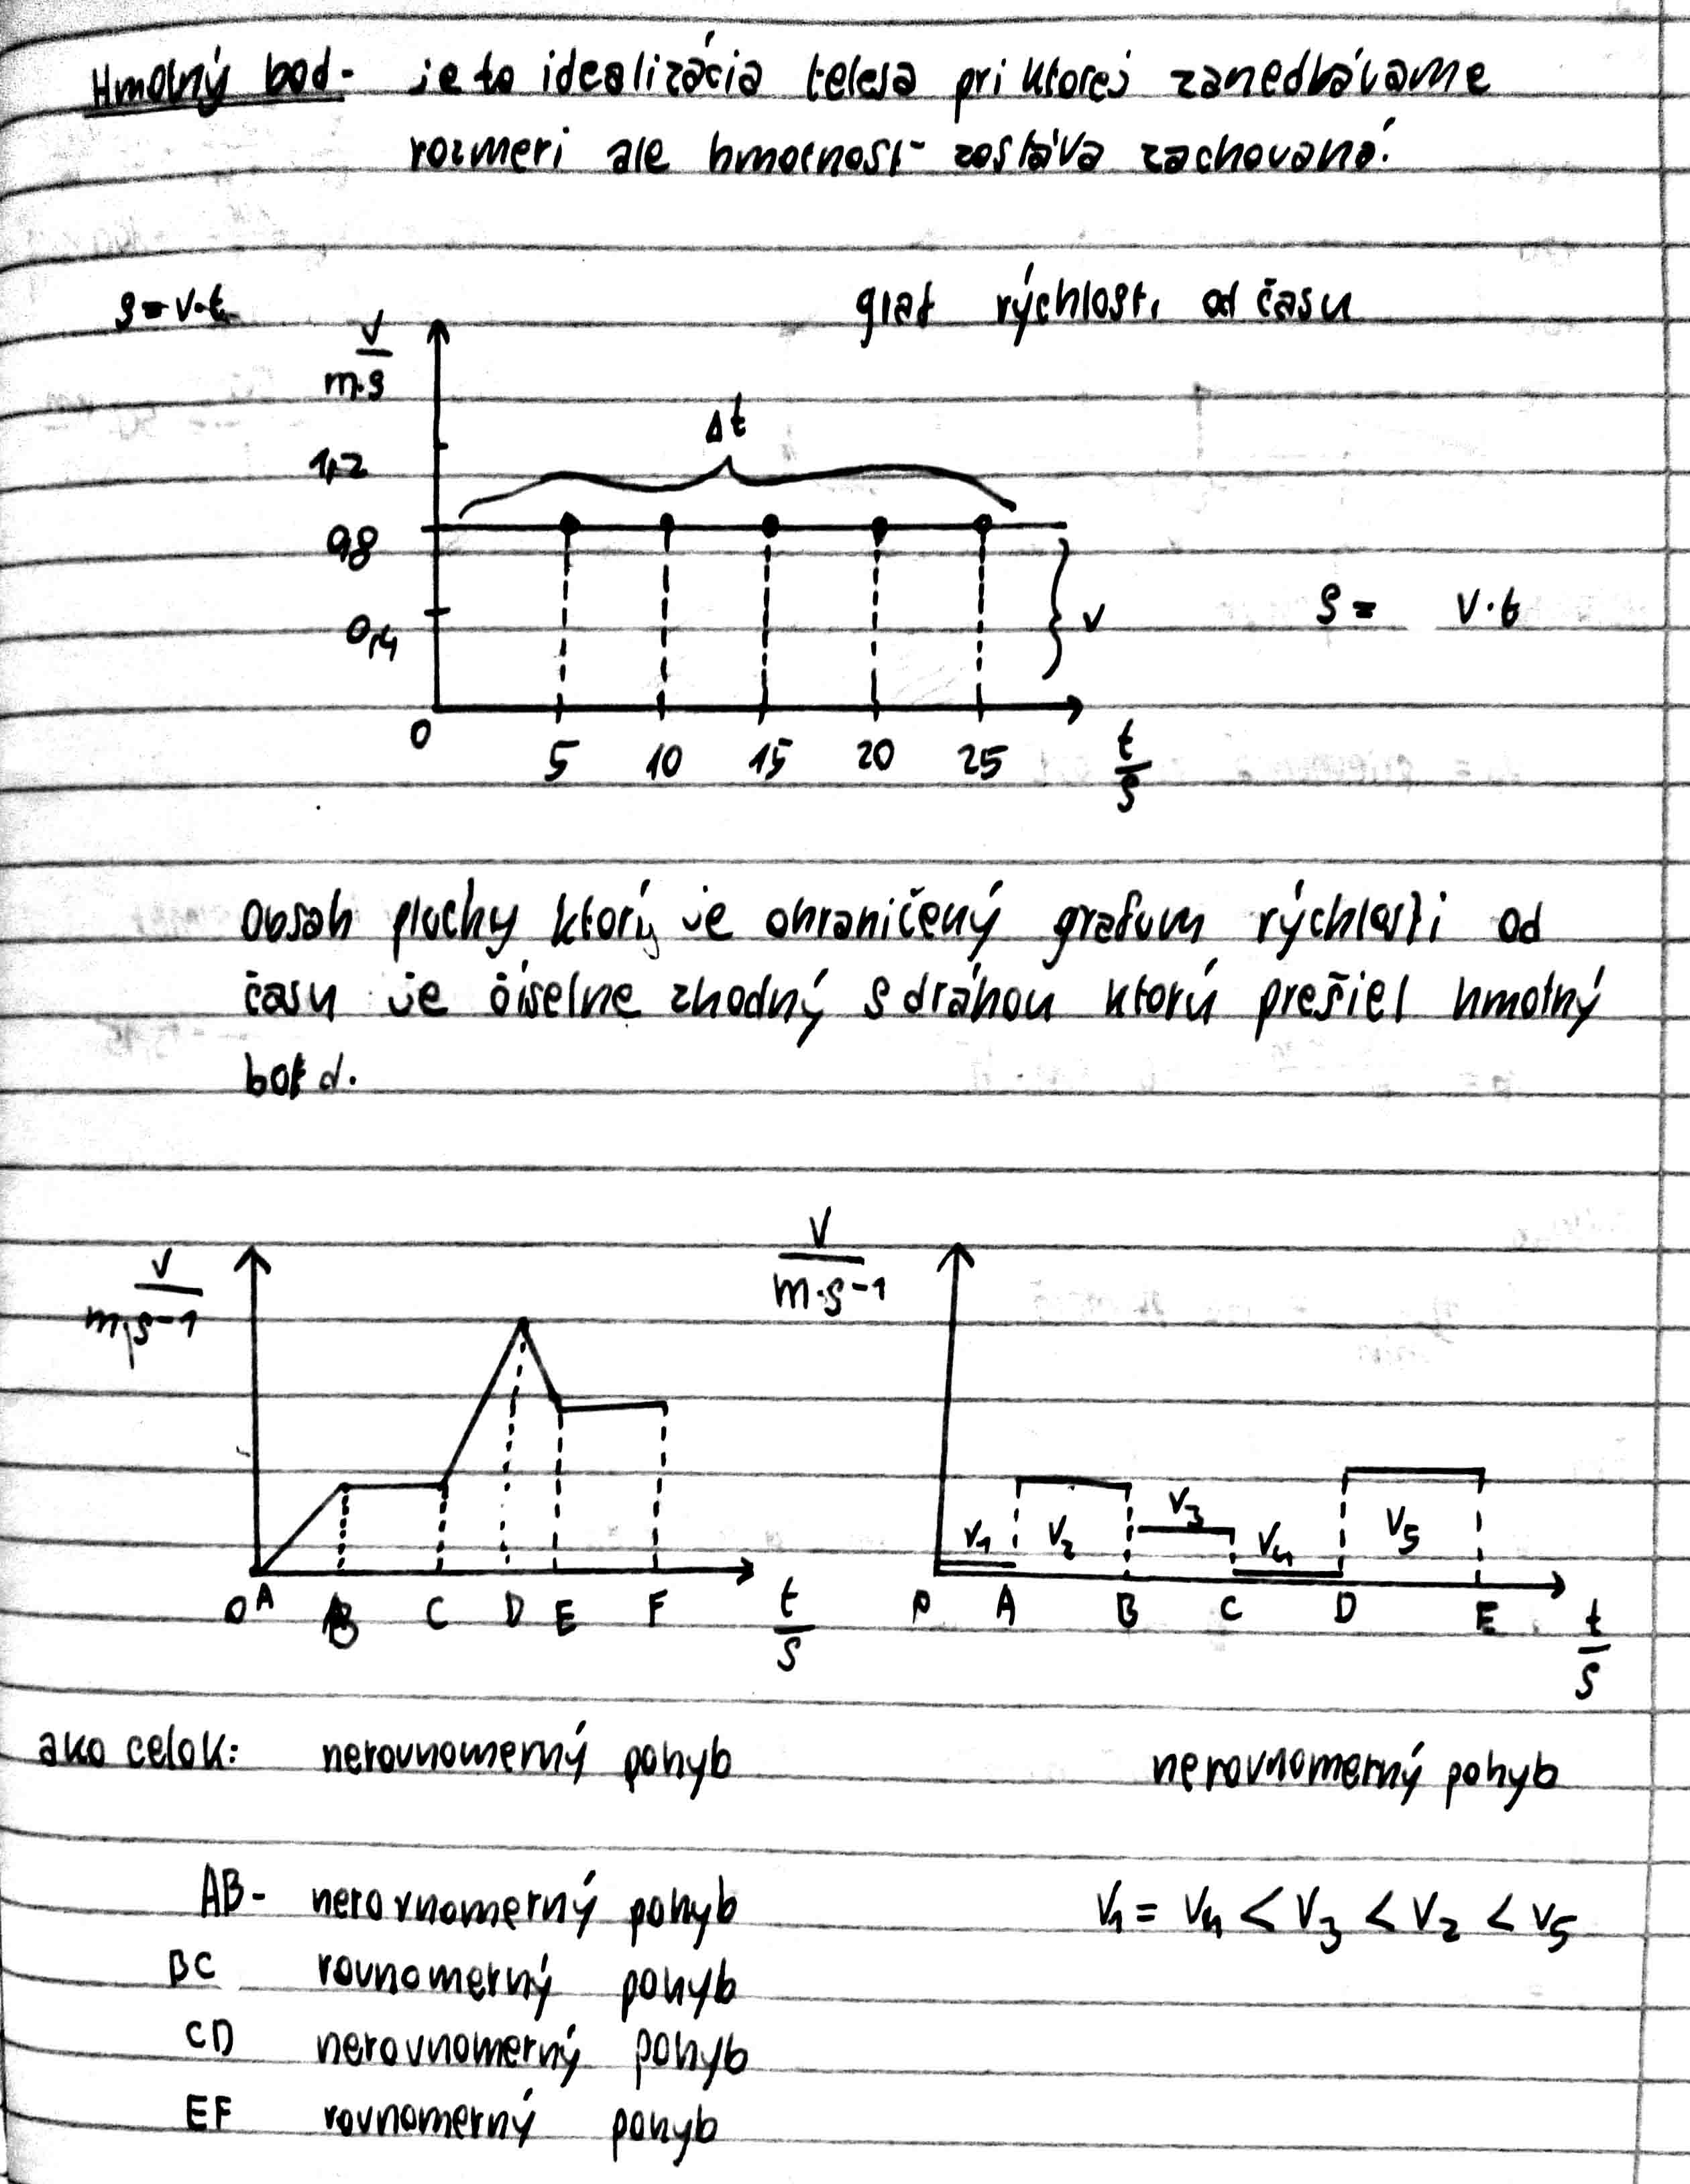 Hmotný bod - je to idealizácia telesa pri ktorej zanedbávame
rozmeri ale hmotnosť zostáva zachovaná.
s = v·t
graf rýchlosti od času
v
m·s
Δt
1,2
0,8
0,4
v
s = v·t
0
5 10 15 20 25
t
s
Obsah plochy ktorý je ohraničený grafom rýchlosti od
času je číselne zhodný s dráhou ktorú prešiel hmotný
bod.
v
m·s-1
0 A B C D E F
t
s
v
m·s-1
v1 v2 v3 v4 v5
0 A B C D E
t
s
ako celok: nerovnomerný pohyb
nerovnomerný pohyb
AB - nerovnomerný pohyb
BC rovnomerný pohyb
CD nerovnomerný pohyb
EF rovnomerný pohyb
v1 = v4 < v3 < v2 < v5